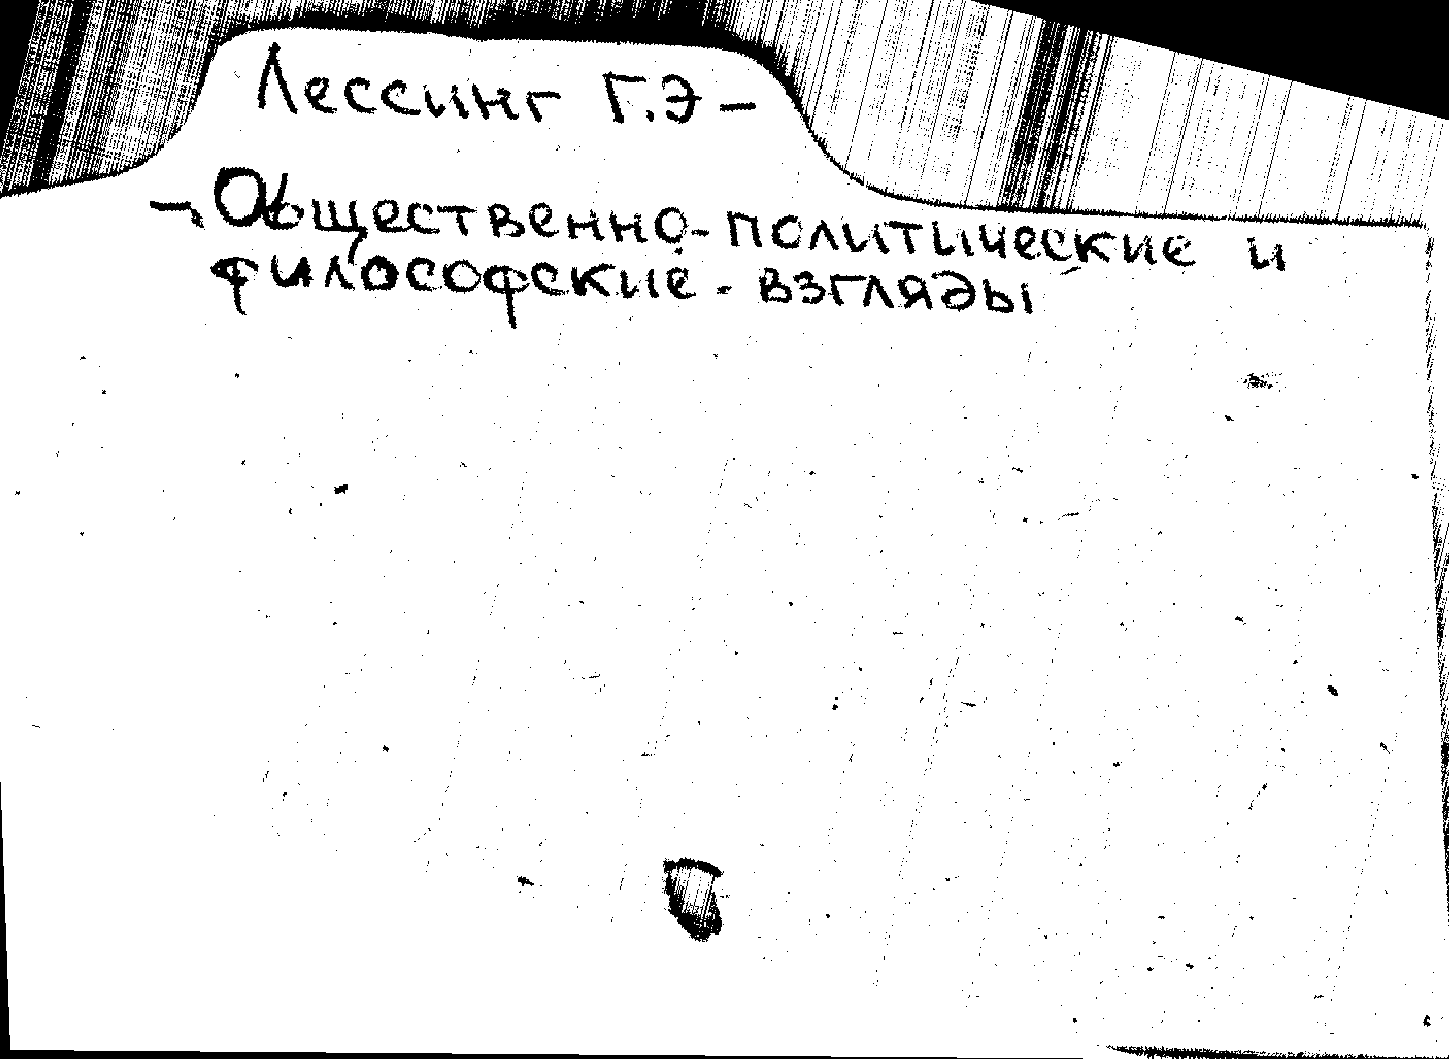 Лессинг Г.Э –
– Общественно-политические и
философские - взгляды